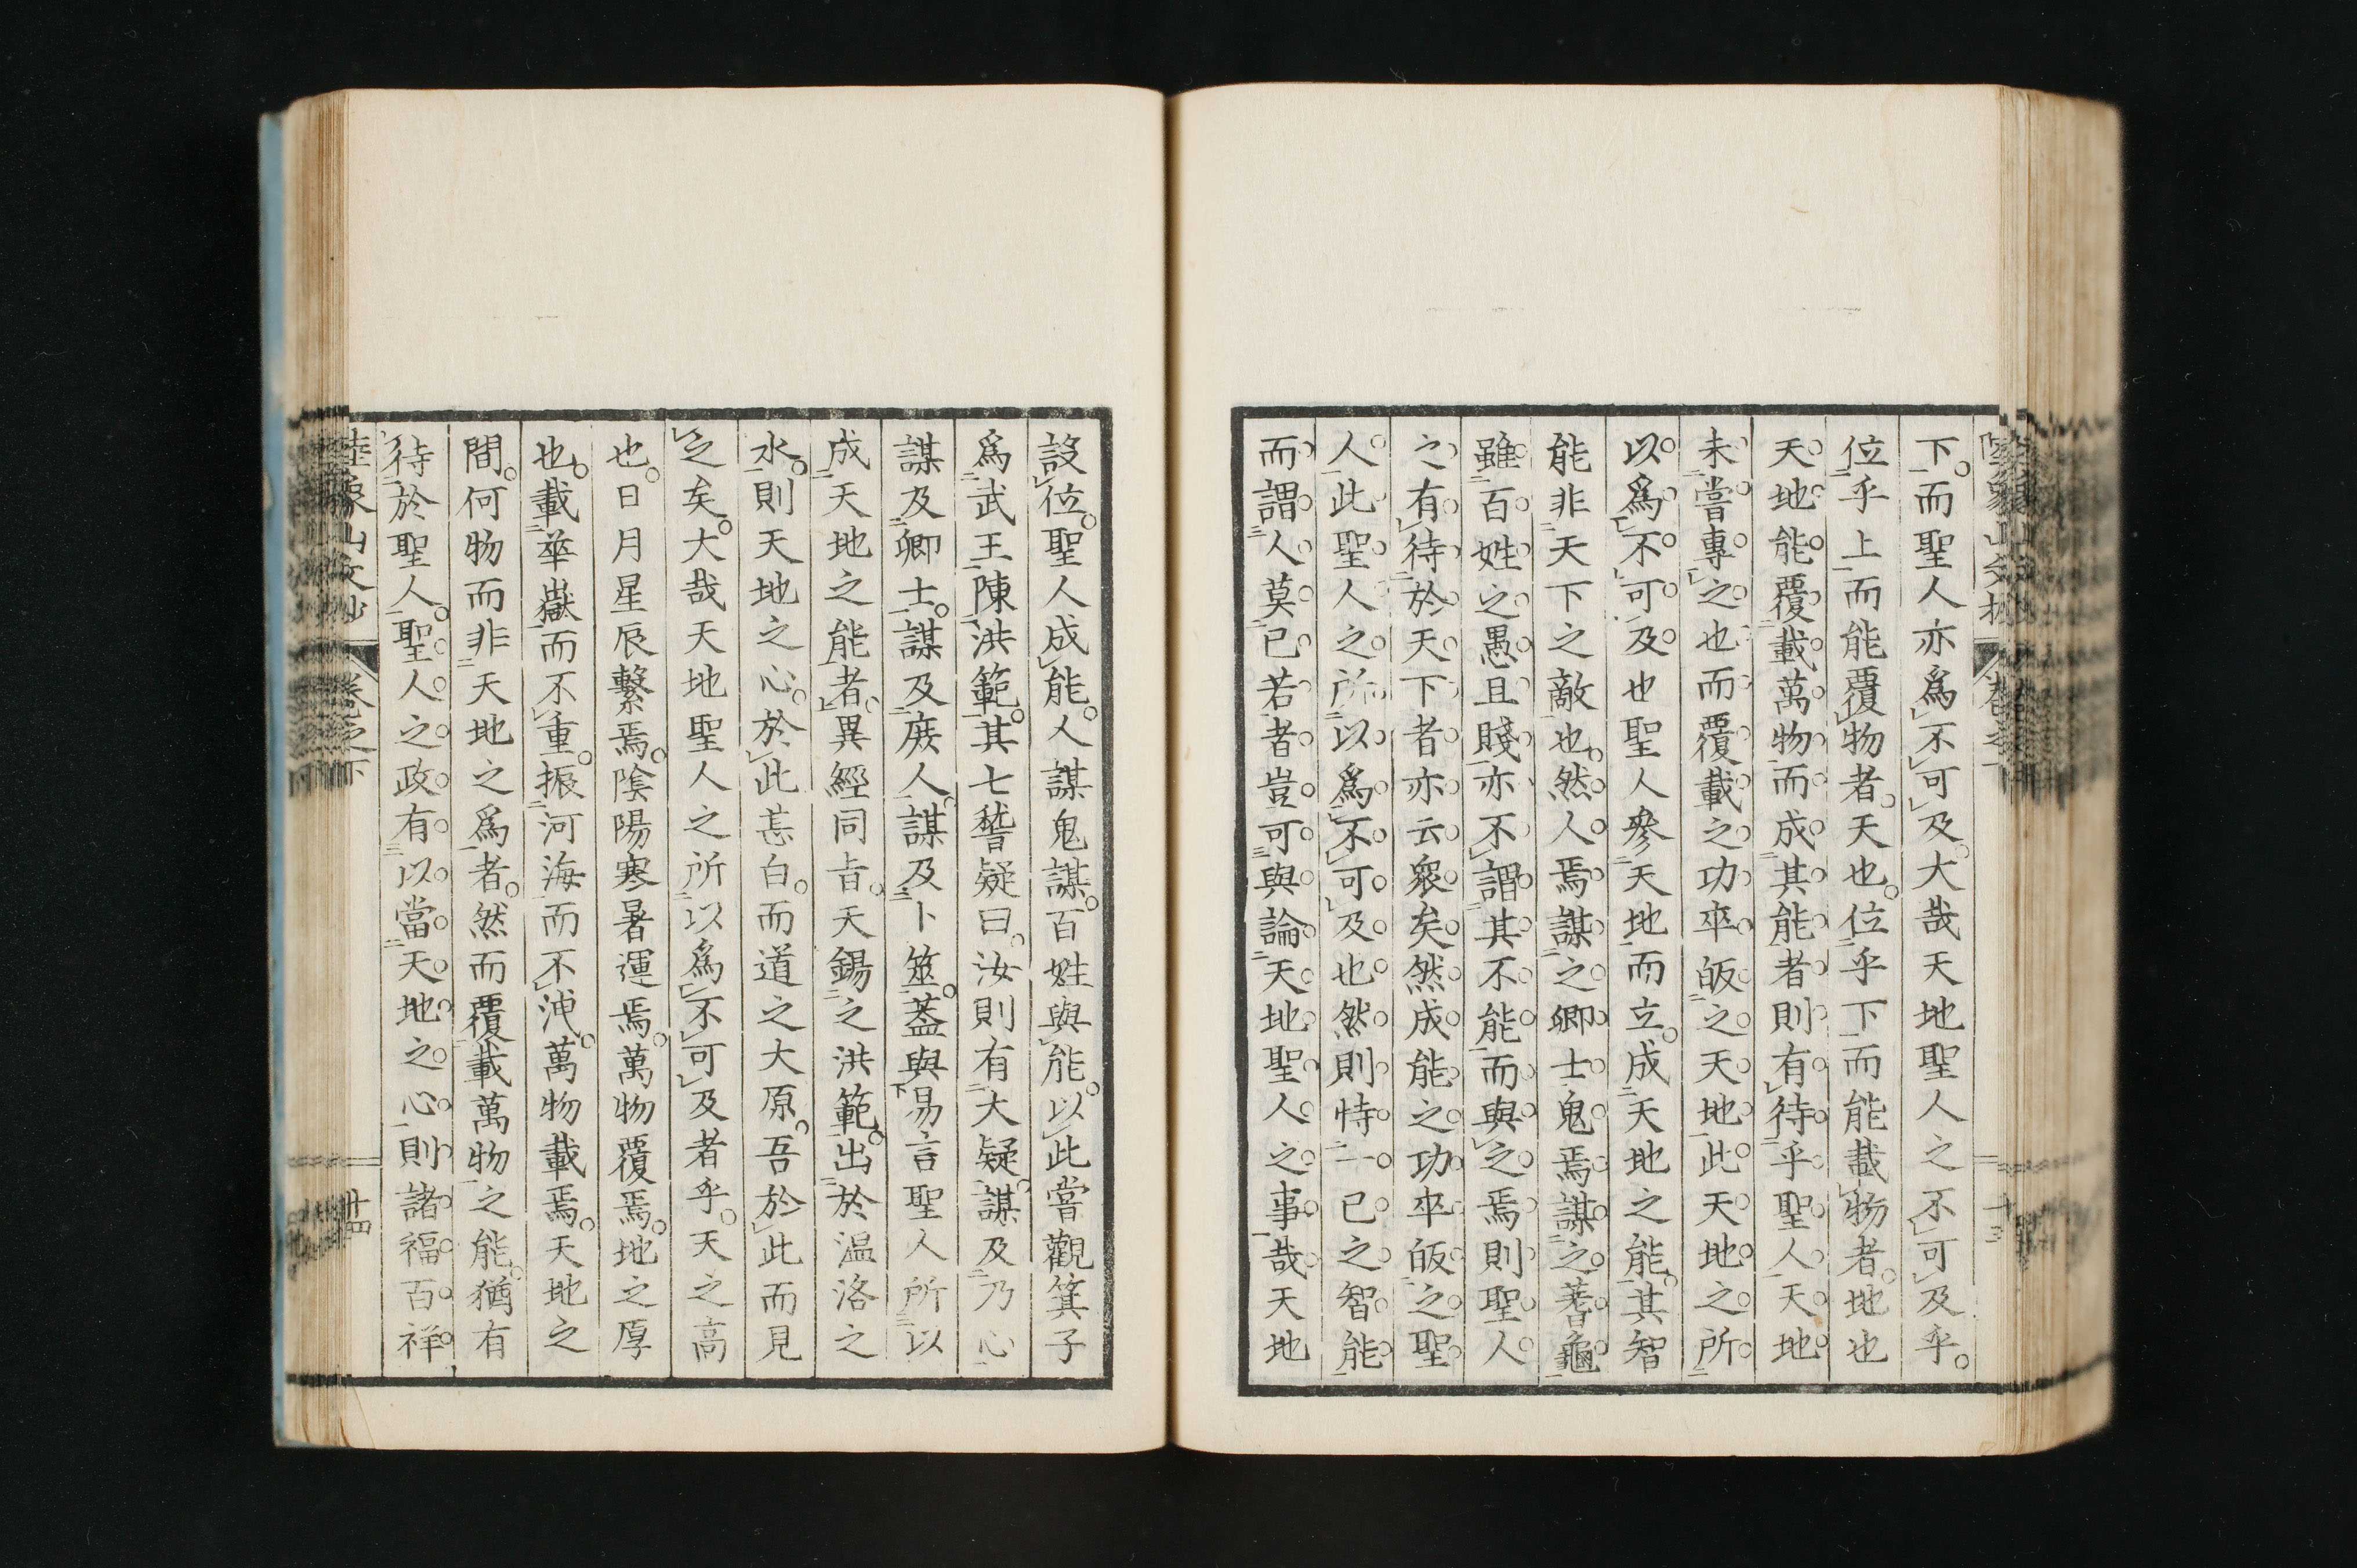 下。而聖人亦爲不可及。大哉天地聖人之不可及乎。
位乎上而能覆物者。天也。位乎下而能載物者。地也
天地能覆載萬物而成其能者則有待乎聖人天地
未嘗專之也而覆載之功卒皈之天地此天地之所
以爲不可及也聖人參天地而立。成天地之能。其智
能非天下之敵也。然人焉謀之卿士鬼焉謀之蓍龜
雖百姓之愚且賤亦不謂其不能而與之焉則聖人
之有待於天下者亦云衆矣然成能之功卒皈之聖
人此聖人之所以爲不可及也然則恃一己之智能
而謂人莫己若者豈可與論天地聖人之事哉天地
設位。聖人成能。人謀鬼謀。百姓與能。以此嘗觀箕子
爲武王陳洪範。其七稽疑曰。汝則有大疑。謀及乃心
謀及卿士。謀及庶人。謀及卜筮。蓋與易言聖人所以
成天地之能者。異經同旨。天錫之洪範。出於温洛之
水。則天地之心。於此甚白。而道之大原。吾於此而見
之矣。大哉天地聖人之所以爲不可及者乎。天之高
也。日月星辰繫焉。陰陽寒暑運焉。萬物覆焉。地之厚
也。載華嶽而不重。振河海而不洩。萬物載焉。天地之
間。何物而非天地之爲者。然而覆載萬物之能。猶有
待於聖人。聖人之政有以當天地之心則諸福百祥
陸象山文抄 卷之下 十四